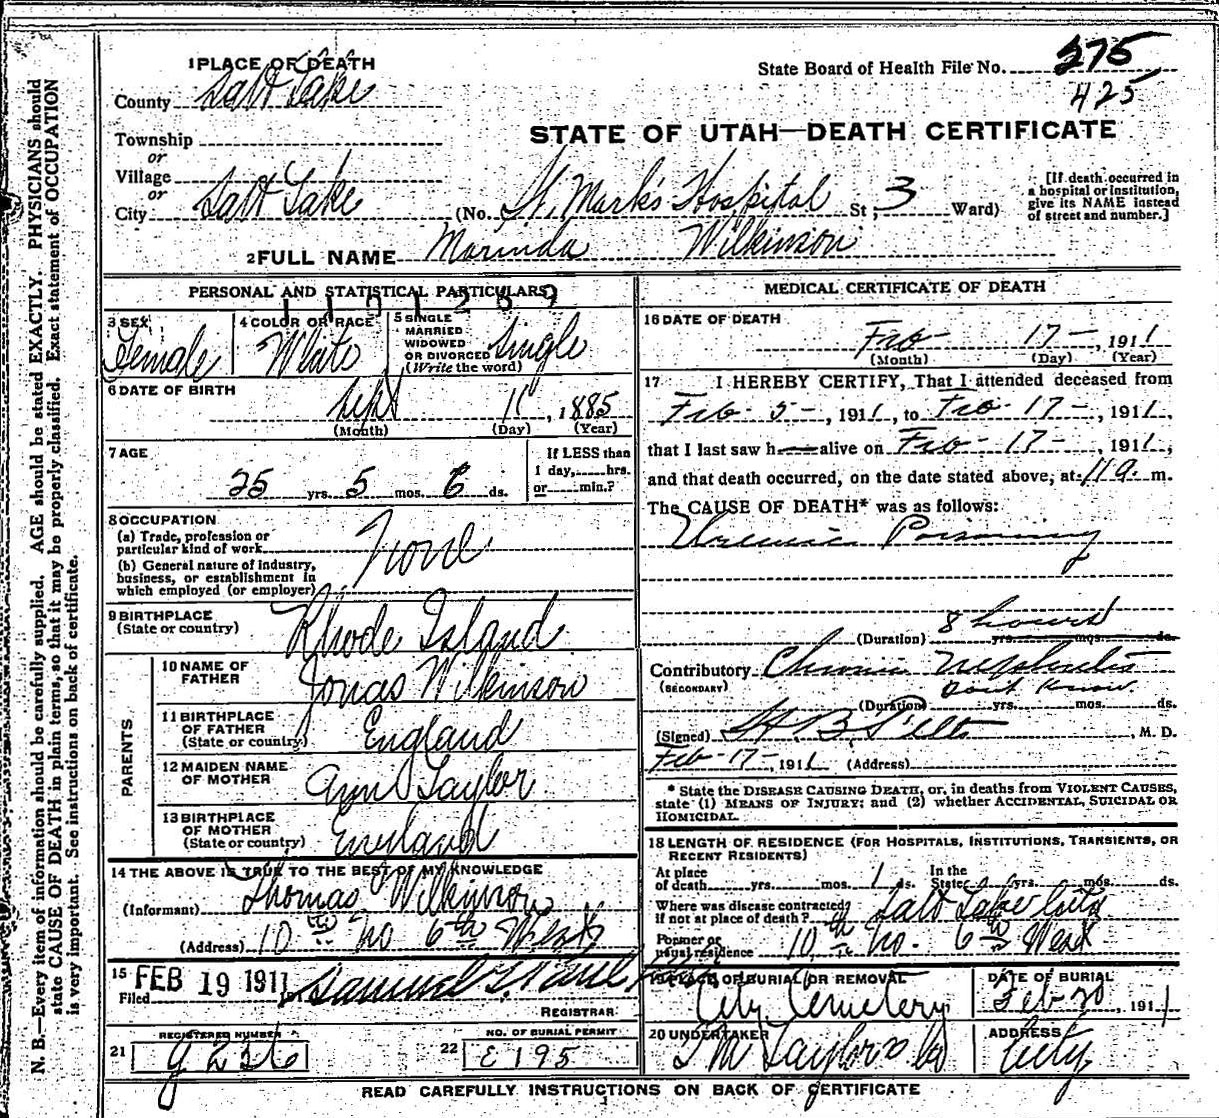 1 PLACE OF DEATH
County Salt Lake
Township
or
Village
or
City Salt Lake
State Board of Health File No. 275
425
STATE OF UTAH—DEATH CERTIFICATE
(No. St. Mark's Hospital St; 3 Ward)
[If death occurred in
a hospital or institution,
give its NAME instead
of street and number.]
2 FULL NAME Marinda Wilkinson
PERSONAL AND STATISTICAL PARTICULARS
3 SEX Female
4 COLOR OR RACE White
5 SINGLE
MARRIED
WIDOWED
OR DIVORCED
(Write the word) Single
6 DATE OF BIRTH
Sept 11, 1885
(Month) (Day) (Year)
7 AGE
25 yrs. 5 mos. 6 ds.
If LESS than
1 day, hrs.
or min.?
8 OCCUPATION
(a) Trade, profession or
particular kind of work
(b) General nature of industry,
business, or establishment in
which employed (or employer)
None
9 BIRTHPLACE
(State or country) Rhode Island
PARENTS
10 NAME OF
FATHER Jonas Wilkinson
11 BIRTHPLACE
OF FATHER
(State or country) England
12 MAIDEN NAME
OF MOTHER Ann Taylor
13 BIRTHPLACE
OF MOTHER
(State or country) England
14 THE ABOVE IS TRUE TO THE BEST OF MY KNOWLEDGE
(Informant) Thomas Wilkinson
(Address) 10th No 6th West
15 Filed FEB 19 1911 Samuel G. Paul
REGISTRAR
REGISTERED NUMBER
21 g236
NO. OF BURIAL PERMIT
22 E195
MEDICAL CERTIFICATE OF DEATH
16 DATE OF DEATH
Feb 17, 1911
(Month) (Day) (Year)
17 I HEREBY CERTIFY, That I attended deceased from
Feb 5, 1911, to Feb 17, 1911,
that I last saw h alive on Feb 17, 1911,
and that death occurred, on the date stated above, at 11 a. m.
The CAUSE OF DEATH* was as follows:
Uremic Poisoning
(Duration) 8 hours yrs. mos. ds.
Contributory Chronic Nephritis
(SECONDARY)
Don't know
(Duration) yrs. mos. ds.
(Signed) , M. D.
Feb 17, 1911 (Address)
* State the DISEASE CAUSING DEATH, or, in deaths from VIOLENT CAUSES,
state (1) MEANS OF INJURY; and (2) whether ACCIDENTAL, SUICIDAL OR
HOMICIDAL.
18 LENGTH OF RESIDENCE (FOR HOSPITALS, INSTITUTIONS, TRANSIENTS, OR
RECENT RESIDENTS)
At place
of death yrs. mos. 1 ds.
In the
State yrs. mos. ds.
Where was disease contracted,
if not at place of death? Salt Lake City
Former or
usual residence 10th No. 6th West
19 PLACE OF BURIAL OR REMOVAL
City Cemetery
DATE OF BURIAL
Feb 20, 1911
20 UNDERTAKER
ADDRESS
City
READ CAREFULLY INSTRUCTIONS ON BACK OF CERTIFICATE
N. B.—Every item of information should be carefully supplied. AGE should be stated EXACTLY. PHYSICIANS should
state CAUSE OF DEATH in plain terms, so that it may be properly classified. Exact statement of OCCUPATION
is very important. See instructions on back of certificate.